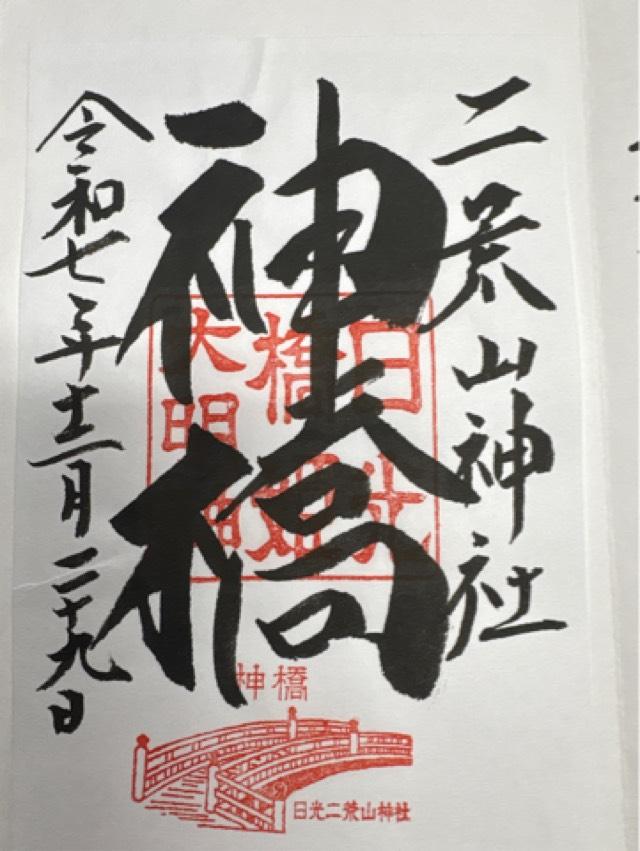 二荒山神社
神橋
令和七年十二月二十九日
日光
橋姫
大明神
神橋
日光二荒山神社